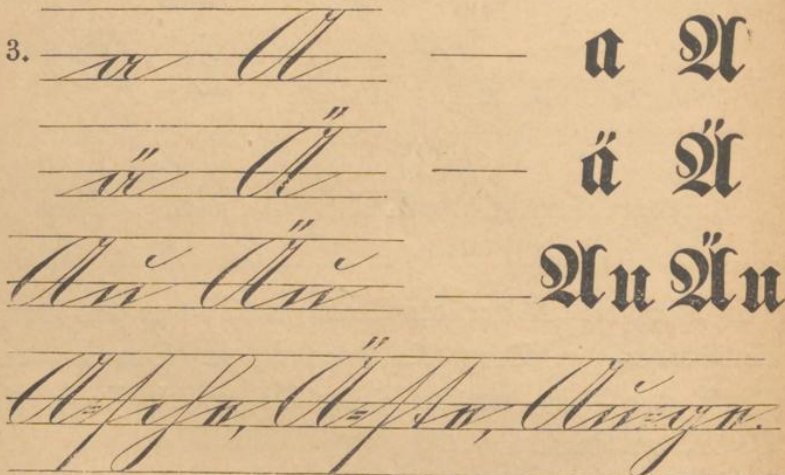 3. a A — a A
ä Ä — ä Ä
Au Äu — Au Äu
A=sche, Ä=ste, Au=ge.